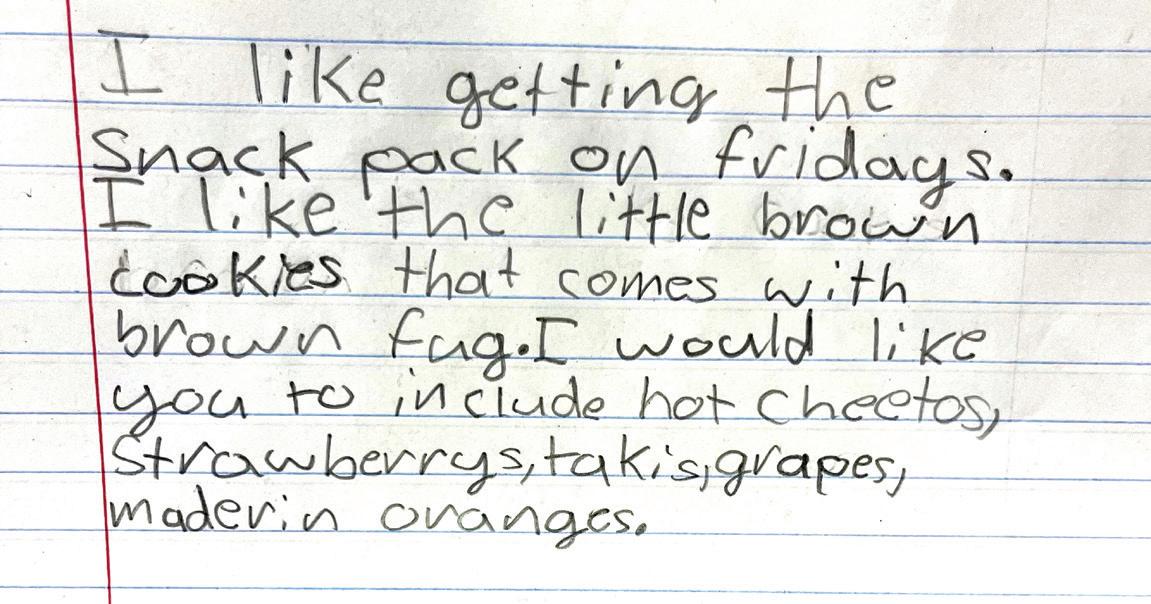 I like getting the
Snack pack on fridays.
I like the little brown
cookies that comes with
brown fug.I would like
you to include hot cheetos,
Strawberrys,takis,grapes,
maderin oranges.